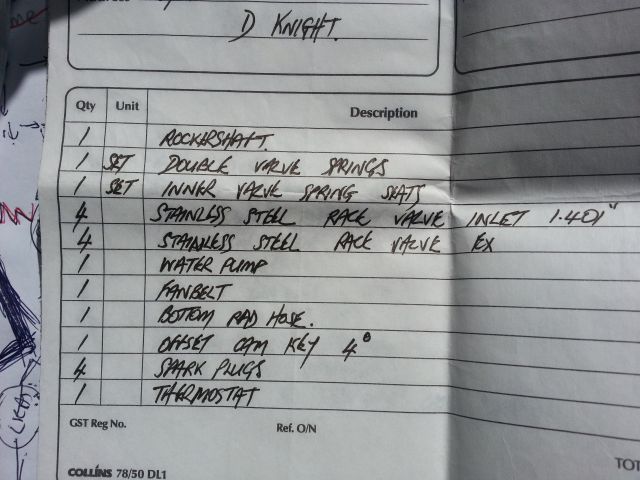 D KNIGHT.
Qty Unit Description
1 ROCKERSHAFT.
1 SET DOUBLE VALVE SPRINGS
1 SET INNER VALVE SPRING SEATS
4 STAINLESS STEEL RACE VALVE INLET 1.401"
4 STAINLESS STEEL RACE VALVE EX
1 WATER PUMP
1 FANBELT
1 BOTTOM RAD HOSE.
1 OFFSET CAM KEY 4°
4 SPARK PLUGS
1 THERMOSTAT
GST Reg No. Ref. O/N
COLLINS 78/50 DL1